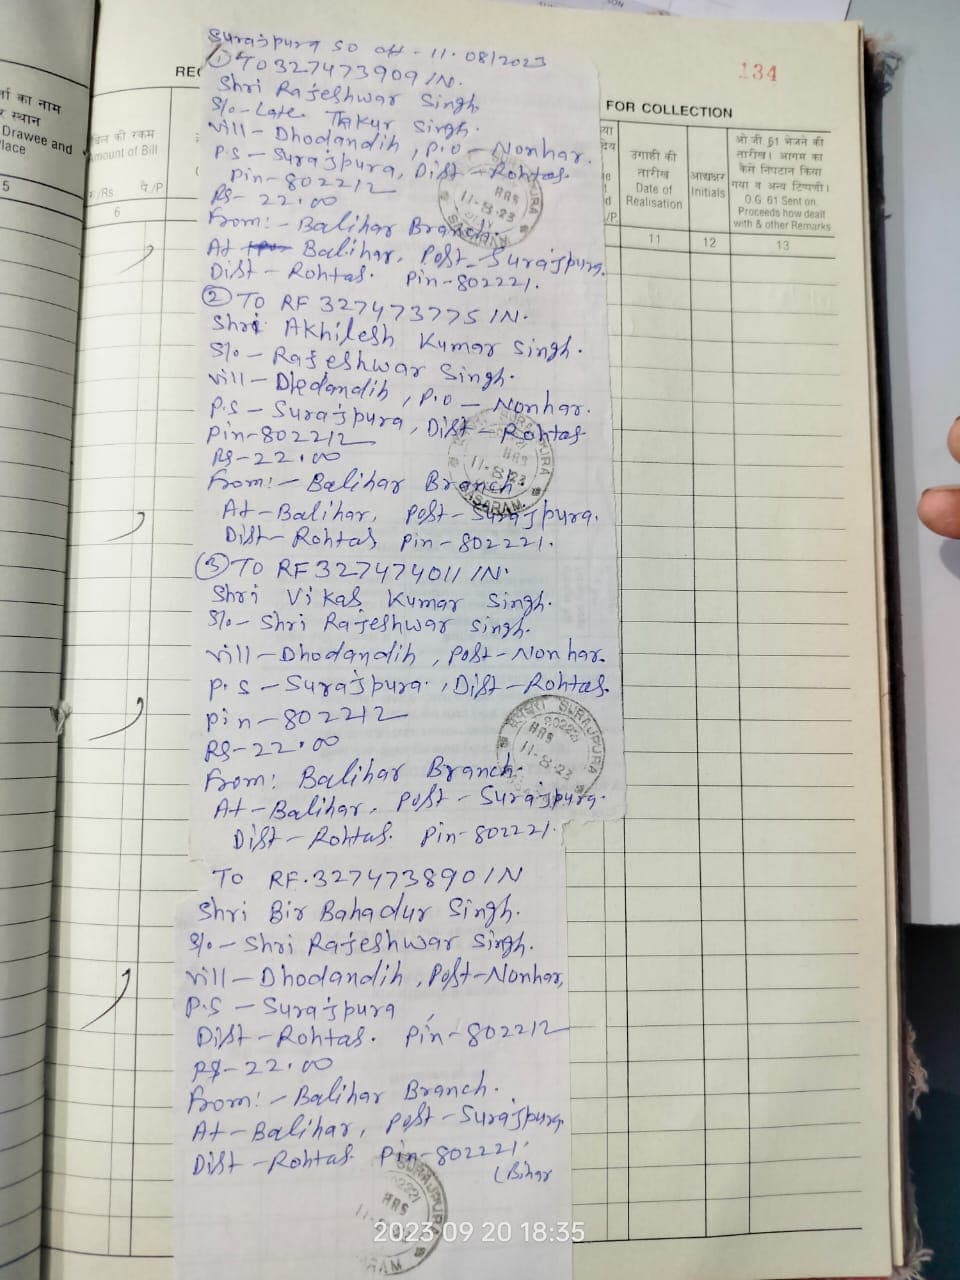 134
FOR COLLECTION
र्ता का नाम
र स्थान
Drawee and
lace
5
बिल की रकम
mount of Bill
/Rs. पै/P
6
उगाही की
तारीख
Date of
Realisation
11
आद्यक्षर
Initials
12
ओ जी 61 भेजने की
तारीख। आगम का
कैसे निपटान किया
गया व अन्य टिप्पणी।
O.G. 61 Sent on.
Proceeds how dealt
with & other Remarks
13
Surajpura SO off - 11.08/2023
① TO 327473909 IN.
Shri Rajeshwar Singh
S/o- Late Thakur Singh.
Vill- Dhodandih, P.O - Nonhar.
P.S - Surajpura, Dist - Rohtas.
Pin-802212
RS- 22.00
From:- Balihar Branch.
At Balihar, Post - Surajpura.
Dist - Rohtas. Pin-802221.
② TO RF 327473775 IN.
Shri Akhilesh Kumar Singh.
S/o- Rajeshwar Singh.
Vill- Dhedandih, P.O - Nonhar.
P.S - Surajpura, Dist - Rohtas
Pin-802212
RS-22.00
From:- Balihar Branch.
At-Balihar, Post-Surajpura.
Dist-Rohtas Pin-802221.
③ TO RF327474011 IN.
Shri Vikas Kumar Singh.
S/o- Shri Rajeshwar Singh.
Vill-Dhodandih, Post-Nonhar.
P.S - Surajpura, Dist-Rohtas.
Pin-802212
RS-22.00
From: Balihar Branch.
At-Balihar, Post-Surajpura.
Dist-Rohtas. Pin-802221.
TO RF.327473890 IN
Shri Bir Bahadur Singh.
S/o- Shri Rajeshwar Singh.
Vill-Dhodandih, Post-Nonhar,
P.S - Surajpura
Dist-Rohtas. Pin-802212
RS-22.00
From:- Balihar Branch.
At-Balihar, Post-Surajpura
Dist-Rohtas. Pin-802221
(Bihar
2023 09 20 18:35